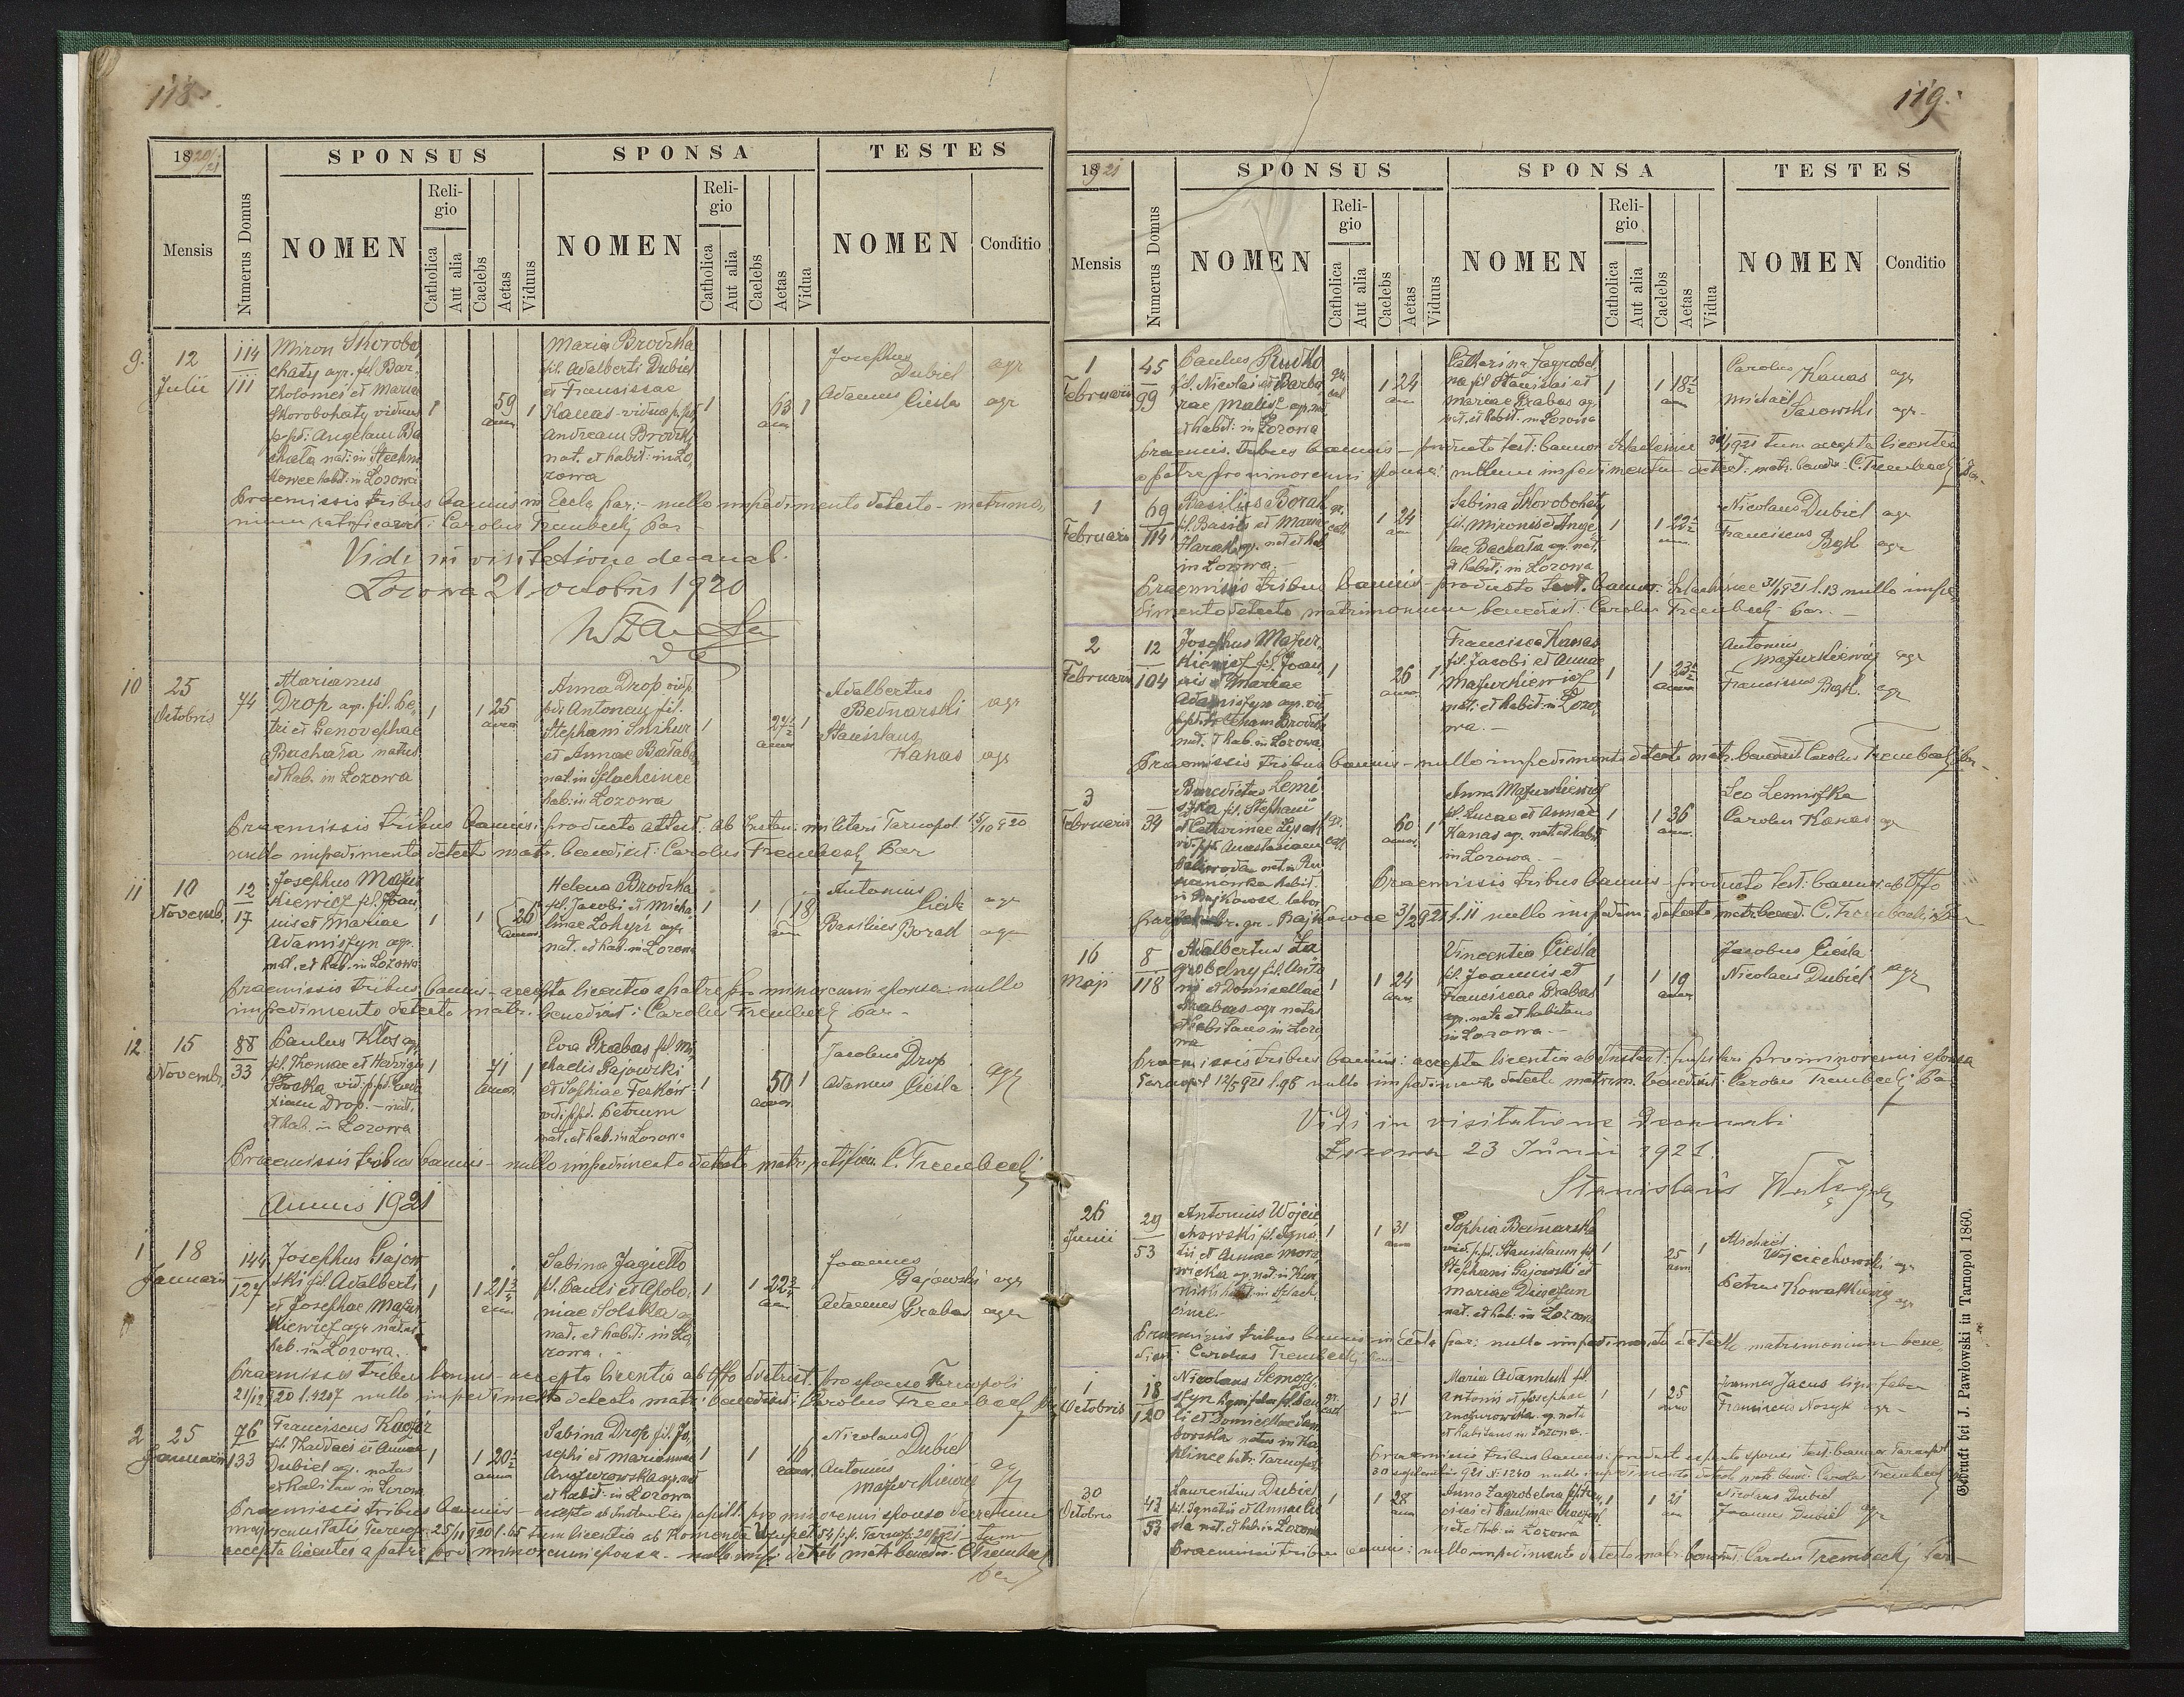 118.
18920/21
SPONSUS
SPONSA
TESTES
Mensis
Numerus Domus
NOMEN
Religio
Catholica
Aut alia
Caelebs
Aetas
Viduus
NOMEN
Religio
Catholica
Aut alia
Caelebs
Aetas
Vidua
NOMEN
Conditio
9.
12
Julii
114
111
Miron Skorobo
haty agr. fil. Bar-
tholomei et Mariae
Skorobohaty viduus
p. pd: Angelam Ba
chata nat: in Stechni
kowce habit: in Lozowa
1
59
annor
1
Maria Brodzka
fil. Adalberti Dubiel
et Franciscae
Kanas vidua p. pd
Andream Brodzki
nat. et habit: in Lo,
zowa
1
63
ann
1
Josephus
Dubiel agr
Adamus
Ciesla agr
Praemissis tribus bannis in Eccla par: - nullo impedimento detecto - matrimo,
nium ratificavit: Carolus Trembecki Par
Vidi in visitatione decanal.
Lozowa 21 octobris 1920
10
25
Octobris
74
Marianus
Drop agr. fil. Pe,
tri et Genovephae
Bachata natus
et hab. in Lozowa
1
1 25
annor
Anna Drop vid p.
pd: Antonium fil.
Stephani Snihur
et Annae Balaba
nat. in Szlachcince
hab: in Lozowa
1
1
annor
Adalbertus
Bednarski agr
Stanislaus
Kanas agr
Praemissis tribus bannis: producto attest. ab Instan: militari Tarnopol 15/10 920
nullo impedimento detecto matr. benedixit: Carolus Trembecki Par
11
10
Novemb.
12
17
Josephus Mazur
kiewicz fil. Joan,
nis et Mariae
Adamiszyn agr.
nat. et hab. in Lozowa
1
1 26
annor
Helena Brodzka
fil. Jacobi et Micha,
linae agr
nat. et hab. in Lozowa
1
1 18
ann
Antonius
agr
Basilius Borat agr
Praemissis tribus bannis - accepta licentia a patre pro minorenni sponsa: nullo
impedimento detecto matr: benedixit: Carolus Trembecki Par -
12
15
Novembr.
88
33
Paulus Klos agr
fil. Thomae et Hedvigis
vid. p. pd.
Drop. - nat.
et hab. in Lozowa
1
41
annor
1
Eva Grabas fil. Mi,
chaelis Gajowski
et Sophiae
vid. p. pd. Petrum
nat. et hab. in Lozowa
1
50
annor.
1
Jacobus Drop
Adamus Ciesla agr
Praemissis tribus bannis - nullo impedimento detecto matr. ratificav. C. Trembecki
Annus 1921
1
18
Januarii
144
127
Josephus Gajow
ski fil. Adalberti
et Josephae Mazur
kiewicz agr natus
hab. in Lozowa.
1
1
ann
Sabina Jagiello
fil. Pauli et Apolo,
niae Solska agr
nat. et habit: in Lo
zowa.
1
1
ann
Joannes
Gajowski agr
Adamus Grabas agr
Praemissis tribus bannis - accepta licentia ab Offo district. pro sponso Tarnopoli
21/12 920 l. 4207 nullo impedimento detecto matr: benedixit: Carolus Trembecki Par
2
25
Januarii
76
133
Franciscus
fil. Thaddaei et Annae
Dubiel agr. natus
et habitans in Lozowa
1
1
annor
Sabina Drop fil. Jo,
sephi et Mariannae
Anczurowska agr. nat
et habit: in Lozowa
1
1 16
annor
Nicolaus
Dubiel agr
Antonius
Mazurkiewicz agr
Praemissis tribus bannis - accepto ab Instantia pupill. pro minorenni sponso decretum
majorennitatis Tarnop. 25/11 920 l. 65 tum licentia ab Komenda Uzupeł 54 p.p. Tarnop. 20/1 921 - tum
accepta licentia a patre pro minorenni sponsa - nullo imp. detecto matr. benedix: C. Trembecki
Par
119.
18921
SPONSUS
SPONSA
TESTES
Mensis
Numerus Domus
NOMEN
Religio
Catholica
Aut alia
Caelebs
Aetas
Viduus
NOMEN
Religio
Catholica
Aut alia
Caelebs
Aetas
Vidua
NOMEN
Conditio
1
Februarii
45
99
Paulus Rudko
fil. Nicolai et Barba
rae Malisz agr. nat
et habit: in Lozowa
gr. cat
1 24
ann
Catharina Zagrobel
na fil. Stanislai et
Mariae Grabas agr.
nat. et habit. in Lozowa
1
1
ann
Carolus
Kanas agr
Michael
Sasowski agr -
praemis. tribus bannis - producto test: bannor. 30/1 921 tum accepta licentia
a patre pro minorenni sponsa: nullum impedimentum detect: matr. bened. C. Trembecki Par -
1
Februarii
69
114
Basilius Borat
fil. Basilii et Mariae
agr. nat et hab
in Lozowa -
gr. cat
1 24
ann
Sabina Skorobohaty
fil. Mironis et Ange
lae Bachata agr. nat.
et habit: in Lozowa
1
1
ann.
Nicolaus Dubiel agr
Franciscus
agr
Praemissis tribus bannis - producto test. bannor. Szlachcince 31/1 921 l. 13 nullo impe,
dimento detecto matrimonium benedixit: Carolus Trembecki - Par -
2
Februarii
12
104
Josephus Mazur,
kiewicz fil. Joan,
nis et Mariae
Adamiszyn agr. vid
p. pd. Helenam Brodzka
nat. et hab. in Lozowa
1
26
annor
1
Francisca Kanas
fil. Jacobi et Annae
Mazurkiewicz
nat: et habit. in Lozo,
wa. -
1
1
annor
Antonius
Mazurkiewicz agr
Franciscus agr
Praemissis tribus bannis - nullo impedimento detecto matr. benedixit Carolus Trembecki Par -
3
Februarii
34
Benedictus Lemi
szka fil. Stephani
et Catharinae
vid. p. pd. Anastasiam
nat. in Ru
sianowka habit.
in Bajkowce labor
gr. cat
60
annor
1
Anna Mazurkiewicz
fil. Lucae et Annae
Kanas agr. nat. et habit
in Lozowa. -
1
1 36
annor.
Leo Lemiszka
Carolus Kanas agr
Praemissis tribus bannis - producto test. bannor. ab Offo
r. gr. Bajkowce 3/2 921 l. 11 nullo impedim: detecto matr. bened. C. Trembecki Par
16
Maji
8
118
Adalbertus Za
grobelny fil. Anto
nii et Domicellae
Grabas agr natus
habitans in Lozo
wa
1
1 24
ann.
Vincentia Ciesla
fil. Joannis et
Franciscae Grabas
agr. nata et habitans
in Lozowa. -
1
1 19
annor
Jacobus Ciesla
Nicolaus Dubiel agr
Praemissis tribus bannis: accepta licentia ab Instant: pupillari pro minorenni sponsa
Tarnopol 12/5 921 l. 96 nullo impedimento detecto matrim. benedixit: Carolus Trembecki Par
Vidi in visitatione Decanali
Lozowa 23 Junii 1921.
Stanislaus
26
Junii
29
53
Antonius Wojcie
chowski fil. Igna,
tii et Annae Mora,
wiecka agr. nat. in
habit in Szlach
cince. -
1
1 31
ann
Sophia Bednarska
vid. p. pd. Stanislaum fil.
Stephani Gajowski et
Mariae
nat. et hab: in Lozowa
1
25
ann
1
Michael
Wojciechowski agr
Petrus Kowalkiewicz agr
Praemissis tribus bannis in Eccla par: nullo impedimento detecto matrimonium bene,
dixit: Carolus Trembecki Par -
1
Octobris
18
120
Nicolaus
fil. Pau
li et Domicellae Sam
borska natus in Ka,
plince habit: Tarnopol.
gr. cat
1 31
ann
Maria Adamiuk fil.
Antonii et Josephae
Anczurowska agr. nata
et habitans in Lozowa. -
1
1 25
anno
Joannes Jacus lign. faber
Franciscus Nosyk agr -
Praemissis tribus bannis: producto ex parte sponsi test: bannor Tarnopol
30 septembris 921 N. 1240 nullo impedimento detecto matr. bened: Carolus Trembecki
30
Octobris
47
53
Laurentius Dubiel
fil. Ignatii et Annae Cie
sla nat. et hab. in Lozowa
1
1 28
ann
Anna Zagrobelna fil. Fran
cisci et Paulinae
nat. et hab. in Lozowa
1
1 21
ann
Nicolaus Dubiel
Joannes Dubiel agr
Praemissis tribus bannis: nullo impedimento detecto matr: benedixit: Carolus Trembecki Par -
Gedruckt bei J. Pawłowski in Tarnopol 1860.